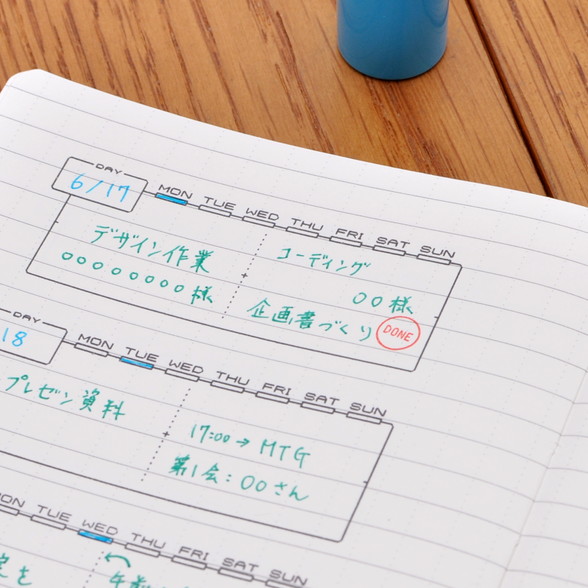 DAY
6/17
MON TUE WED THU FRI SAT SUN
デザイン作業
○○○○○○○○様
コーディング
○○様
企画書づくり DONE
DAY
18
MON TUE WED THU FRI SAT SUN
プレゼン資料
17:00→MTG
第1会:○○さん
MON TUE WED THU FRI SAT SUN
を